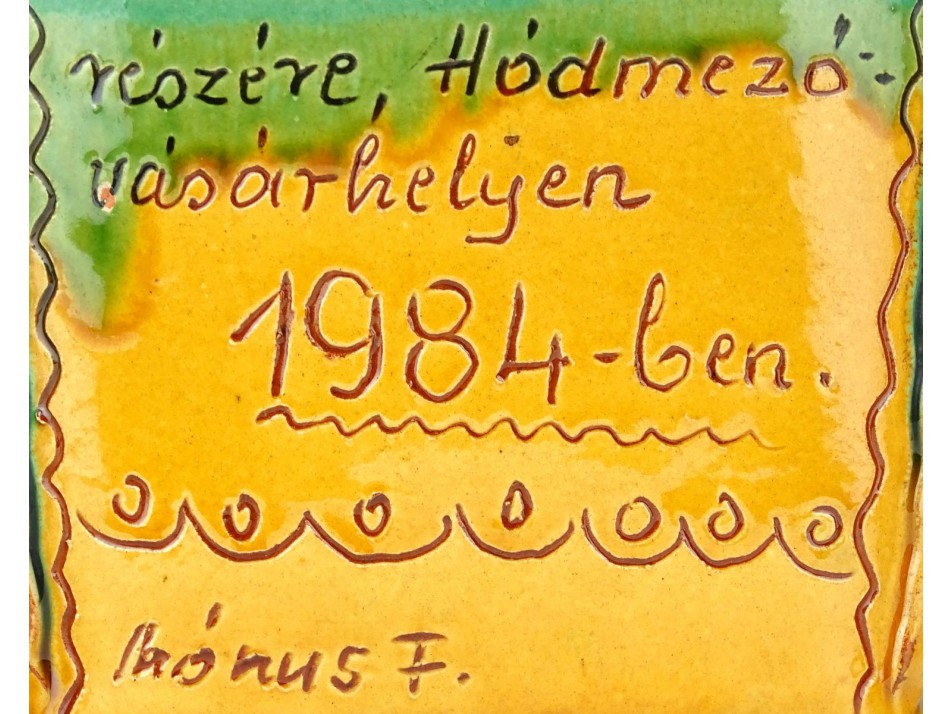 részére, Hódmező-
vásárhelyen
1984-ben.
Mónus F.